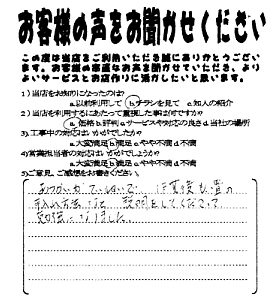 お客様の声をお聞かせください
この度は当店をご利用いただき誠にありがとうござい
ます。お客様の率直なお声を聞かせていただき、より
よいサービスとお店作りに活かしたいと思います。
1)当店をお知りになったのは?
a.以前利用して b.チラシを見て c.知人の紹介
2)当店を利用するにあたって重視した事は何ですか?
a.価格 b.評判 c.サービスや対応の良さ d.当社の場所
3)工事中の対応はいかがでしたか?
a.大変満足 b.満足 c.やや不満 d.不満
4)営業担当者の対応はいかがでしょうか?
a.大変満足 b.満足 c.やや不満 d.不満
5)ご意見、ご感想をお書きください。
ていねいで、作業後も
方法など説明をしてくださって
勉強になりました。